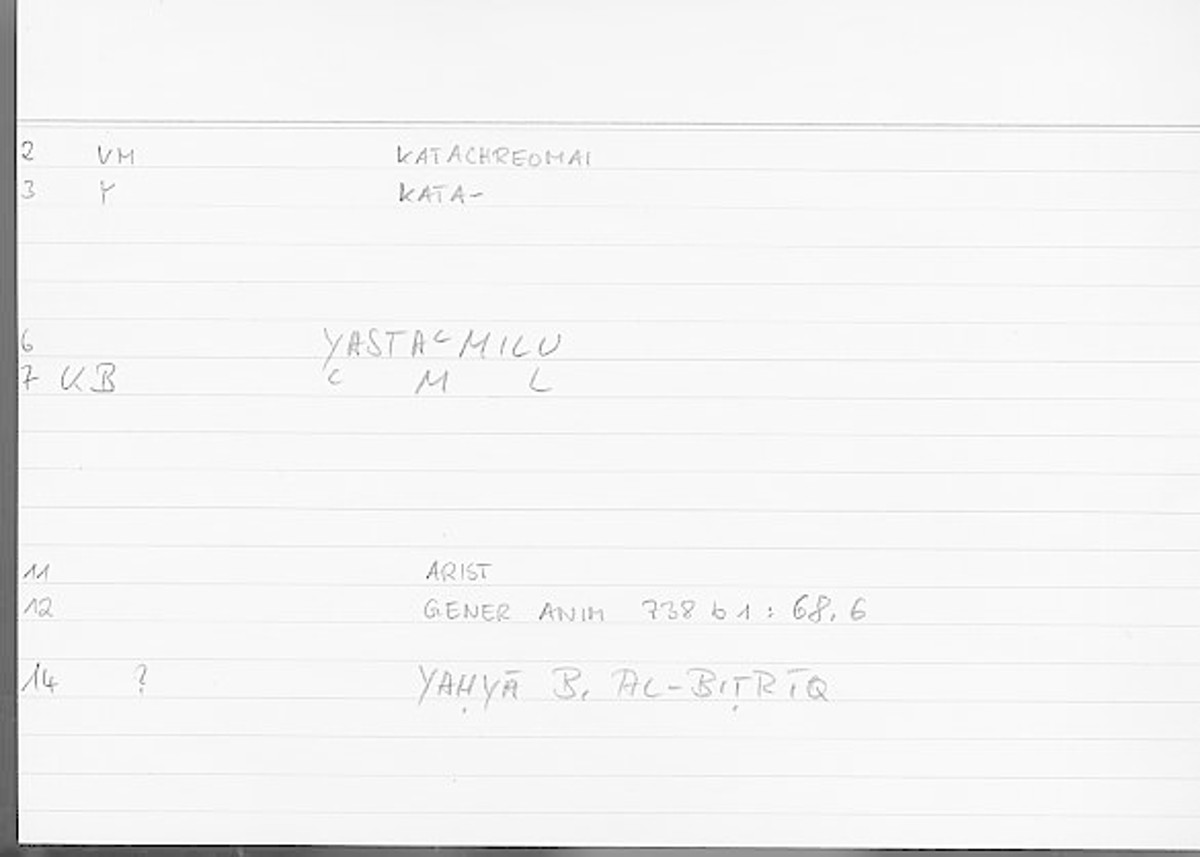 2 VM KATACHREOMAI
3 Y KATA-
6 YASTAᶜMILU
7 KB ᶜ M L
11 ARIST
12 GENER ANIM 738 b 1 : 68, 6
14 ? YAḤYĀ B. AL-BIṬRĪQ